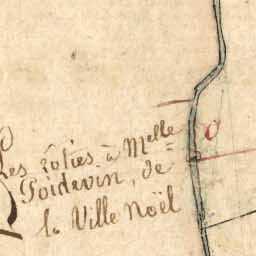 Les rôties à Melle
Poidevin, de
la Ville Noël